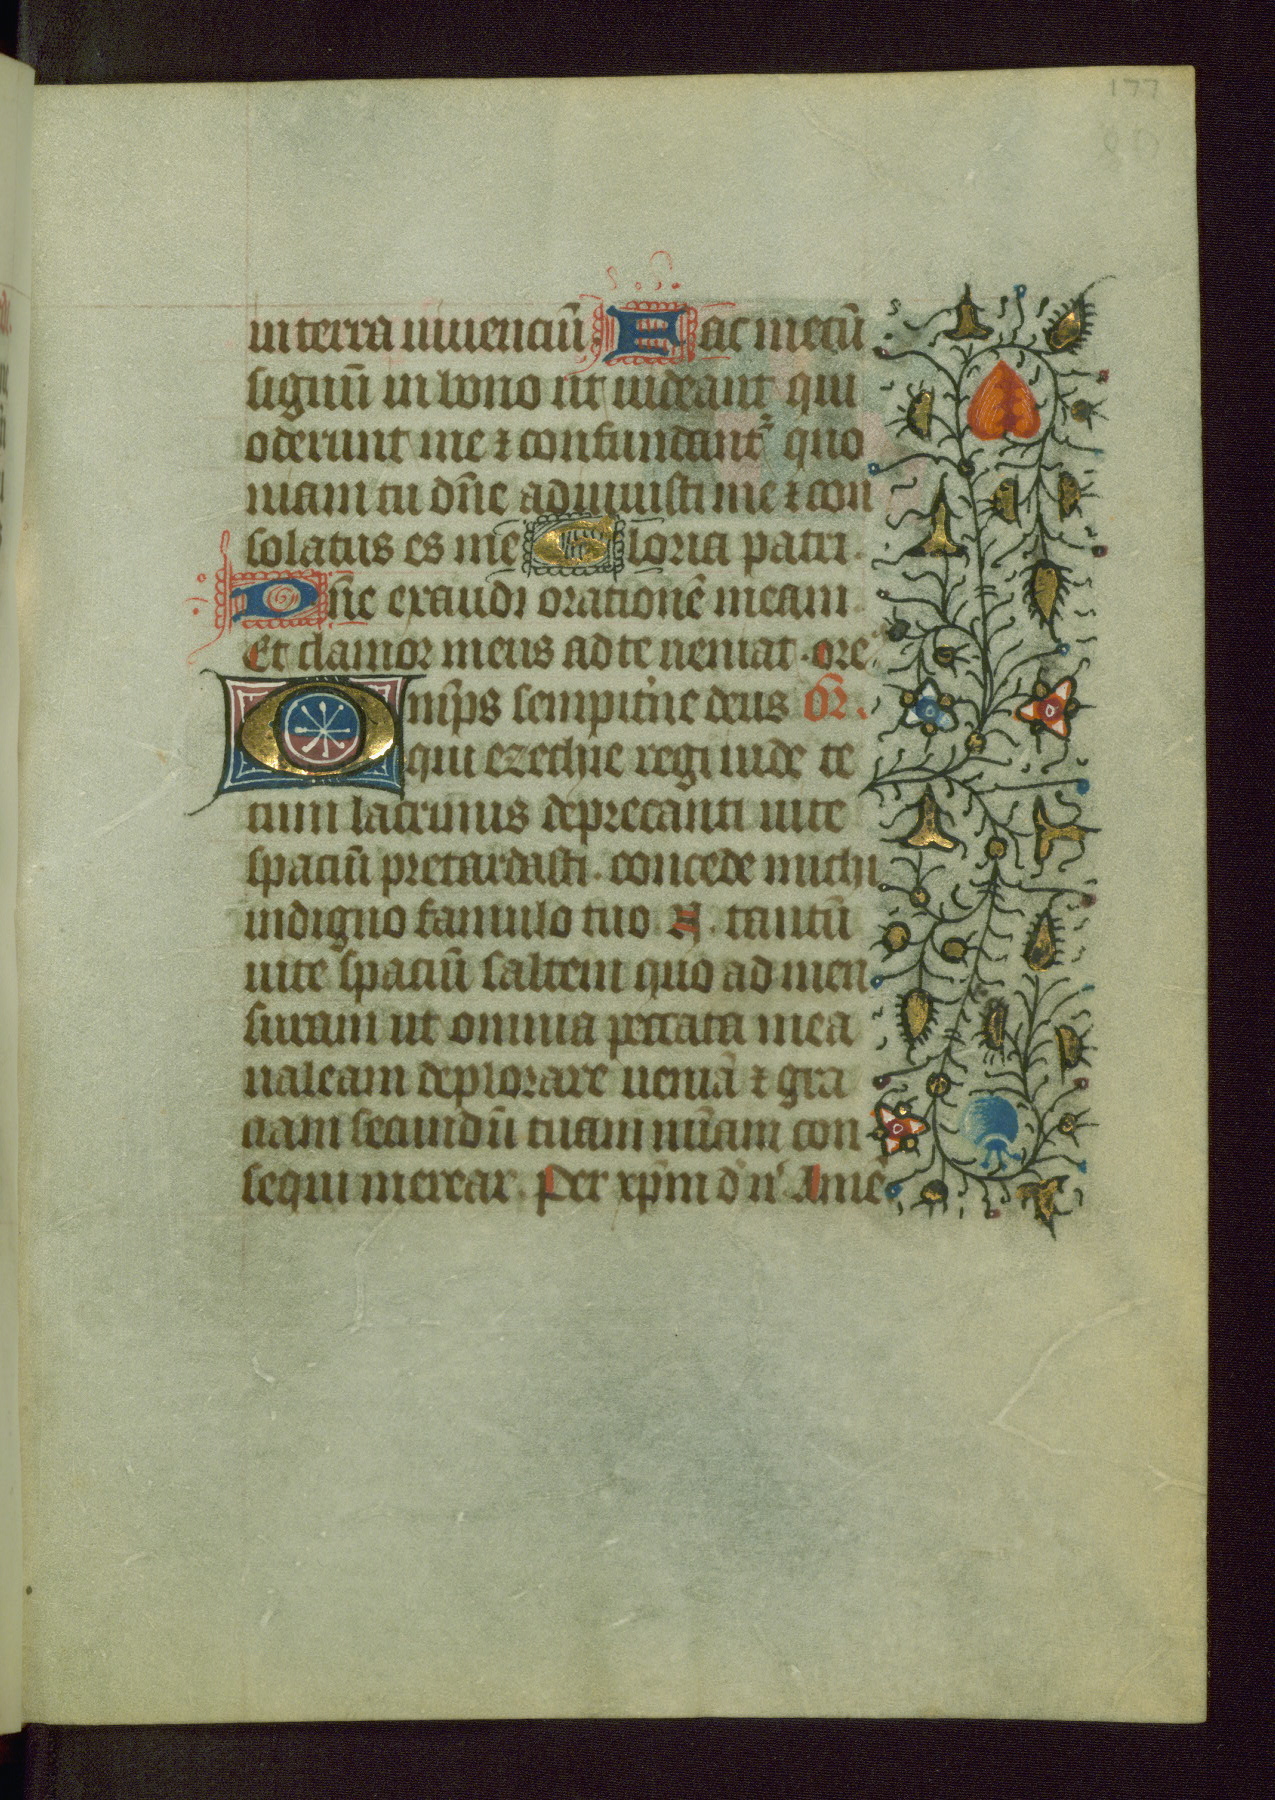 177
in terra uiuenciū. Fac mecū
signū in bono ut uideant qui
oderunt me ⁊ confundant᷑ quo
niam tu dn̄e adiuuisti me ⁊ con
solatus es me Gloria patri.
Dn̄e exaudi orationē meam
Et clamor meus ad te ueniat. ore
Omp̄s sempit'ne deus Or̄.
qui ezechie regi iude te
cum lacrimis deprecanti uite
spaciū pretardasti. concede michi
indigno famulo tuo N. tantū
uite spaciū saltem quo ad men
suram ut omnia peccata mea
ualeam deplorare ueniā ⁊ gra
ciam secundū tuam mīam con
sequi merear. Per xp̄m d' n' Amē